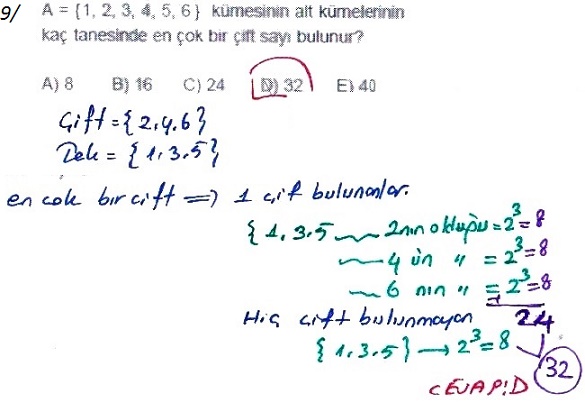 9/ A = {1, 2, 3, 4, 5, 6} kümesinin alt kümelerinin
kaç tanesinde en çok bir çift sayı bulunur?
A) 8 B) 16 C) 24 D) 32 E) 40
Çift = {2,4,6}
Tek = {1,3,5}
en çok bir çift => 1 çift bulunanlar.
{1,3,5 2nin olduğu = 2³ = 8
4 ün " = 2³ = 8
6 nın " = 2³ = 8
24
Hiç çift bulunmayan
{1,3,5} → 2³ = 8
32
CEVAP:D